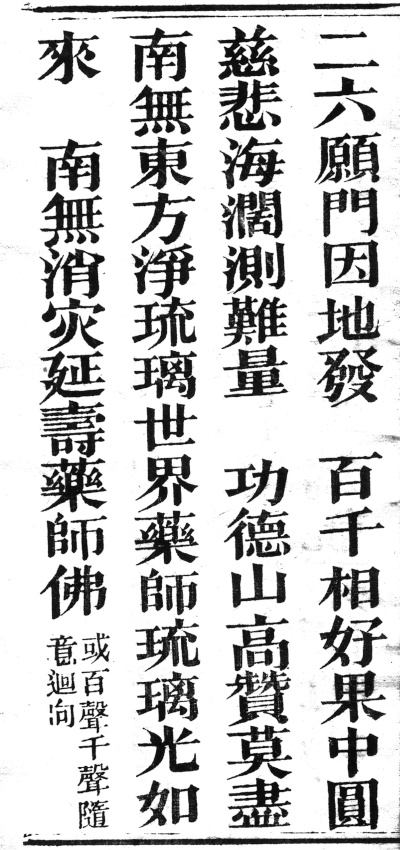 二六願門因地發　百千相好果中圓
慈悲海濶測難量　功德山高贊莫盡
南無東方淨琉璃世界藥師琉璃光如
來　南無消灾延壽藥師佛
或百聲千聲隨
意迴向